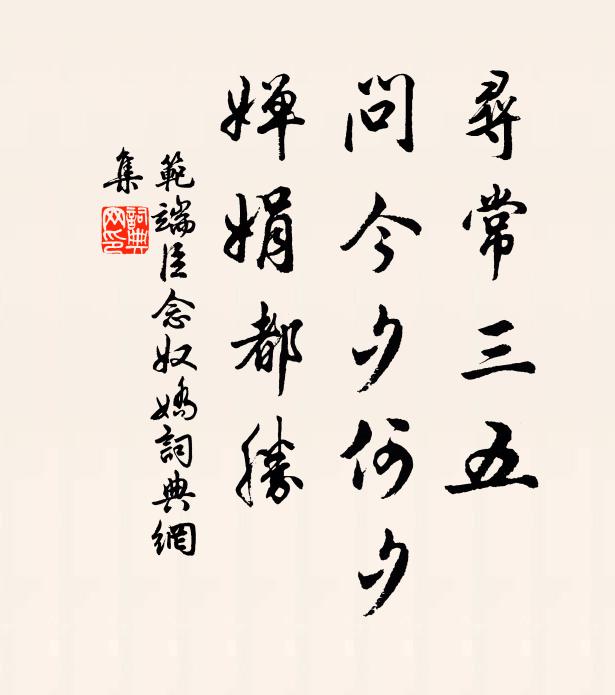 尋常三五
問今夕何夕
嬋娟都勝
範端臣念奴嬌詞典網
集
詞典
网印